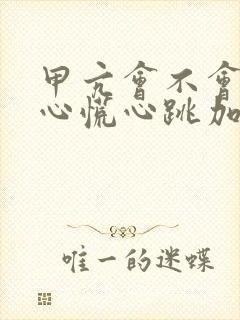 甲亢會不會
心慌心跳加
唯一的迷蝶